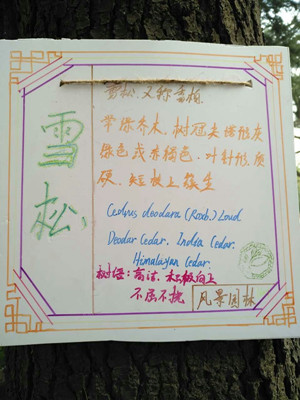 雪松
雪松,又称香柏.
常绿乔木,树冠尖塔形灰
绿色或赤褐色.叶针形,质
硬,短枝上簇生
Cedrus deodara (Roxb.) Loud
Deodar Cedar. India Cedar.
Himalayan Cedar.
树语:高洁.积极向上
不屈不挠
风景园林